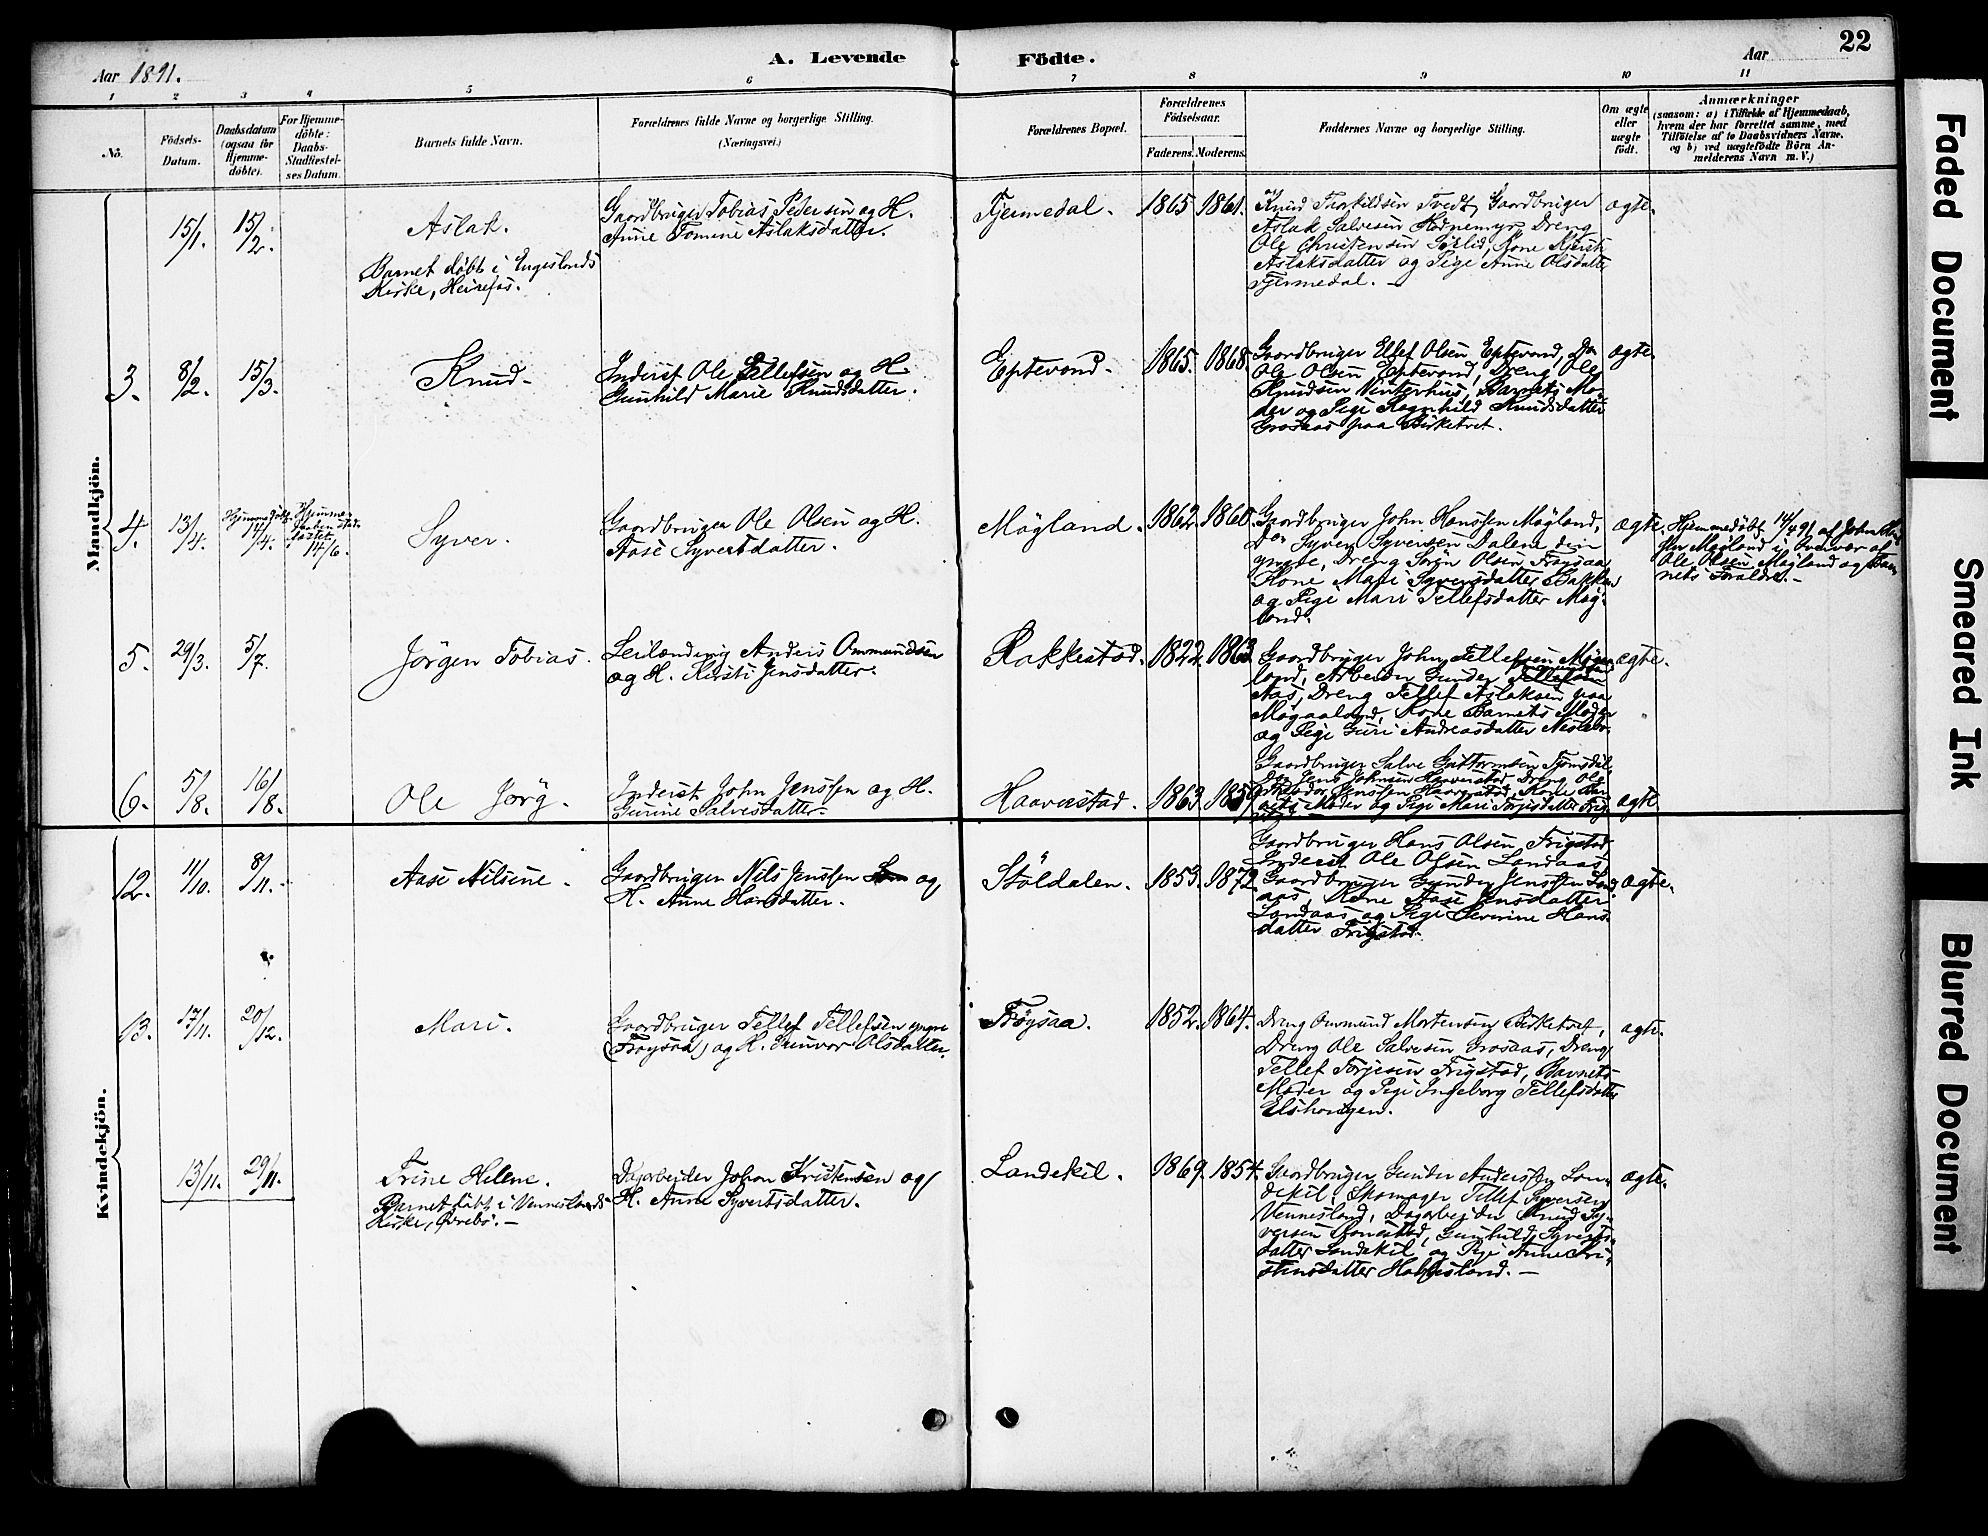 22
A. Levende Födte.
Aar 1891.
Aar
1 2 3 4 5 6 7 8 9 10 11
No.
Födsels-
Datum.
Daabsdatum
(ogsaa for
Hjemme-
döbte).
For Hjemme-
döbte:
Daabs-
Stadfæstel-
ses Datum.
Barnets fulde Navn.
Forældrenes fulde Navne og borgerlige Stilling.
(Næringsvei.)
Forældrenes Bopæl.
Forældrenes
Födselsaar.
Faderens. Moderens.
Faddernes Navne og borgerlige Stilling.
Om ægte
eller
uægte
födt.
Anmærkninger
(saasom: a) i Tilfælde af Hjemmedaab,
hvem der har forrettet samme, med
Tilföielse af to Daabsvidners Navne,
og b) ved uægtefödte Börn An-
melderens Navn m. V.)
Mandkjön.
15/1. 15/2.
Aslak.
Barnet døbt i Engeslands
Kirke, Herefos.
Gaardbruger Tobias Pedersen og H.
Anne Tomine Aslaksdatter.
Fjermedal.
1865 1861.
Knud Tarkildsen Tvedt, Gaardbruger
Aslak Salvesen Hodnemyr, Dreng
Ole Christensen Sørlid, Kone Kjersti
Aslaksdatter og Pige Anne Olsdatter
Fjermedal. —
ægte.
3. 8/2. 15/3.
Knud.
Inderst Ole Tellefsen og H.
Gunhild Marie Knudsdatter.
Eptevand.
1865. 1868.
Gaardbruger Ellef Olsen Eptevand, Do
Ole Olsen Eptevand, Dreng Ole
Knudsen Vinterhus, Barnets Mo-
der og Pige Ragnhild Knudsdatter
Grosaas paa Birketvet.
ægte.
4. 13/4.
Hjemmedøbt
14/4.
Hjemme-
daaben stad-
fæstet
14/6.
Syver.
Gaardbruger Ole Olsen og H.
Aase Syvertsdatter.
Møgland.
1862. 1860.
Gaardbruger John Hanssen Møgland,
Do Syver Syversen Dalene den
yngre, Dreng Søren Olsen Frøysaa,
Kone Mari Syversdatter Bakken
og Pige Mari Tellefsdatter Møg-
land.
ægte.
Hjemmedøbt 14/4 91 af John Han-
sen Møgland i Overvær af
Ole Olsen Møgland og Bar-
nets Forældre. —
5. 29/3. 5/7.
Jørgen Tobias.
Leilænding Anders Ommundsen
og H. Kirsti Jensdatter.
Rakkestad.
1822. 1863.
Gaardbruger John Tellefsen Møg-
land, Arbeider Gunder
Aas, Dreng Tellef Aslaksen paa
Møgaaland, Kone Barnets Moder
og Pige Guri Andreasdatter
ægte.
6. 5/8. 16/8.
Ole Jørg.
Inderst John Jenssen og H.
Gurine Salvesdatter.
Haaverstad.
1863.
Gaardbruger Salve Guttormsen
Do Jens Johnsen Haaverstad, Dreng Ole
Theodor Jenssen Haaverstad, Kone Bar-
nets Moder og Pige Mari Torjesdatter Frig-
ægte
Kvindekjön.
12. 11/10. 8/11.
Aase Nilsine.
Gaardbruger Nils Jenssen og
H. Anne Hansdatter.
Støldalen.
1853. 1872.
Gaardbruger Hans Olsen Frigstad
Inderst Ole Olsen Landaas,
Gaardbruger Gunder Jenssen Land-
aas, Kone Aase Jensdatter
Landaas og Pige Severine Hans-
datter Frigstad.
ægte.
13. 17/11. 20/12.
Mari.
Gaardbruger Tellef Tellefsen yngre
(Frøysaa) og H. Gunvor Olsdatter.
Frøysaa.
1852. 1864.
Dreng Ommund Mortensen Birketvet,
Dreng Ole Salvesen Grosaas, Dreng
Tellef Torjesen Frigstad, Barnets
Moder og Pige Ingeborg Tellefsdatter
Elshaugen.
ægte.
13/11. 29/11.
Trine Helene.
Barnet døbt i Venneslands
Kirke, Øvrebø. —
Dagarbeider Johan Kristensen og
H. Anne Syvertsdatter.
Landekil.
1869. 1854.
Gaardbruger Gunder Anderssen Lan-
dekil, Skomager Tellef Syversen
Vennesland, Dagarbejder Knud Sy-
versen , Gunhild Syverts-
datter Landekil og Pige Anne Kri-
stensdatter . —
ægte.
Faded Document
Smeared Ink
Blurred Document